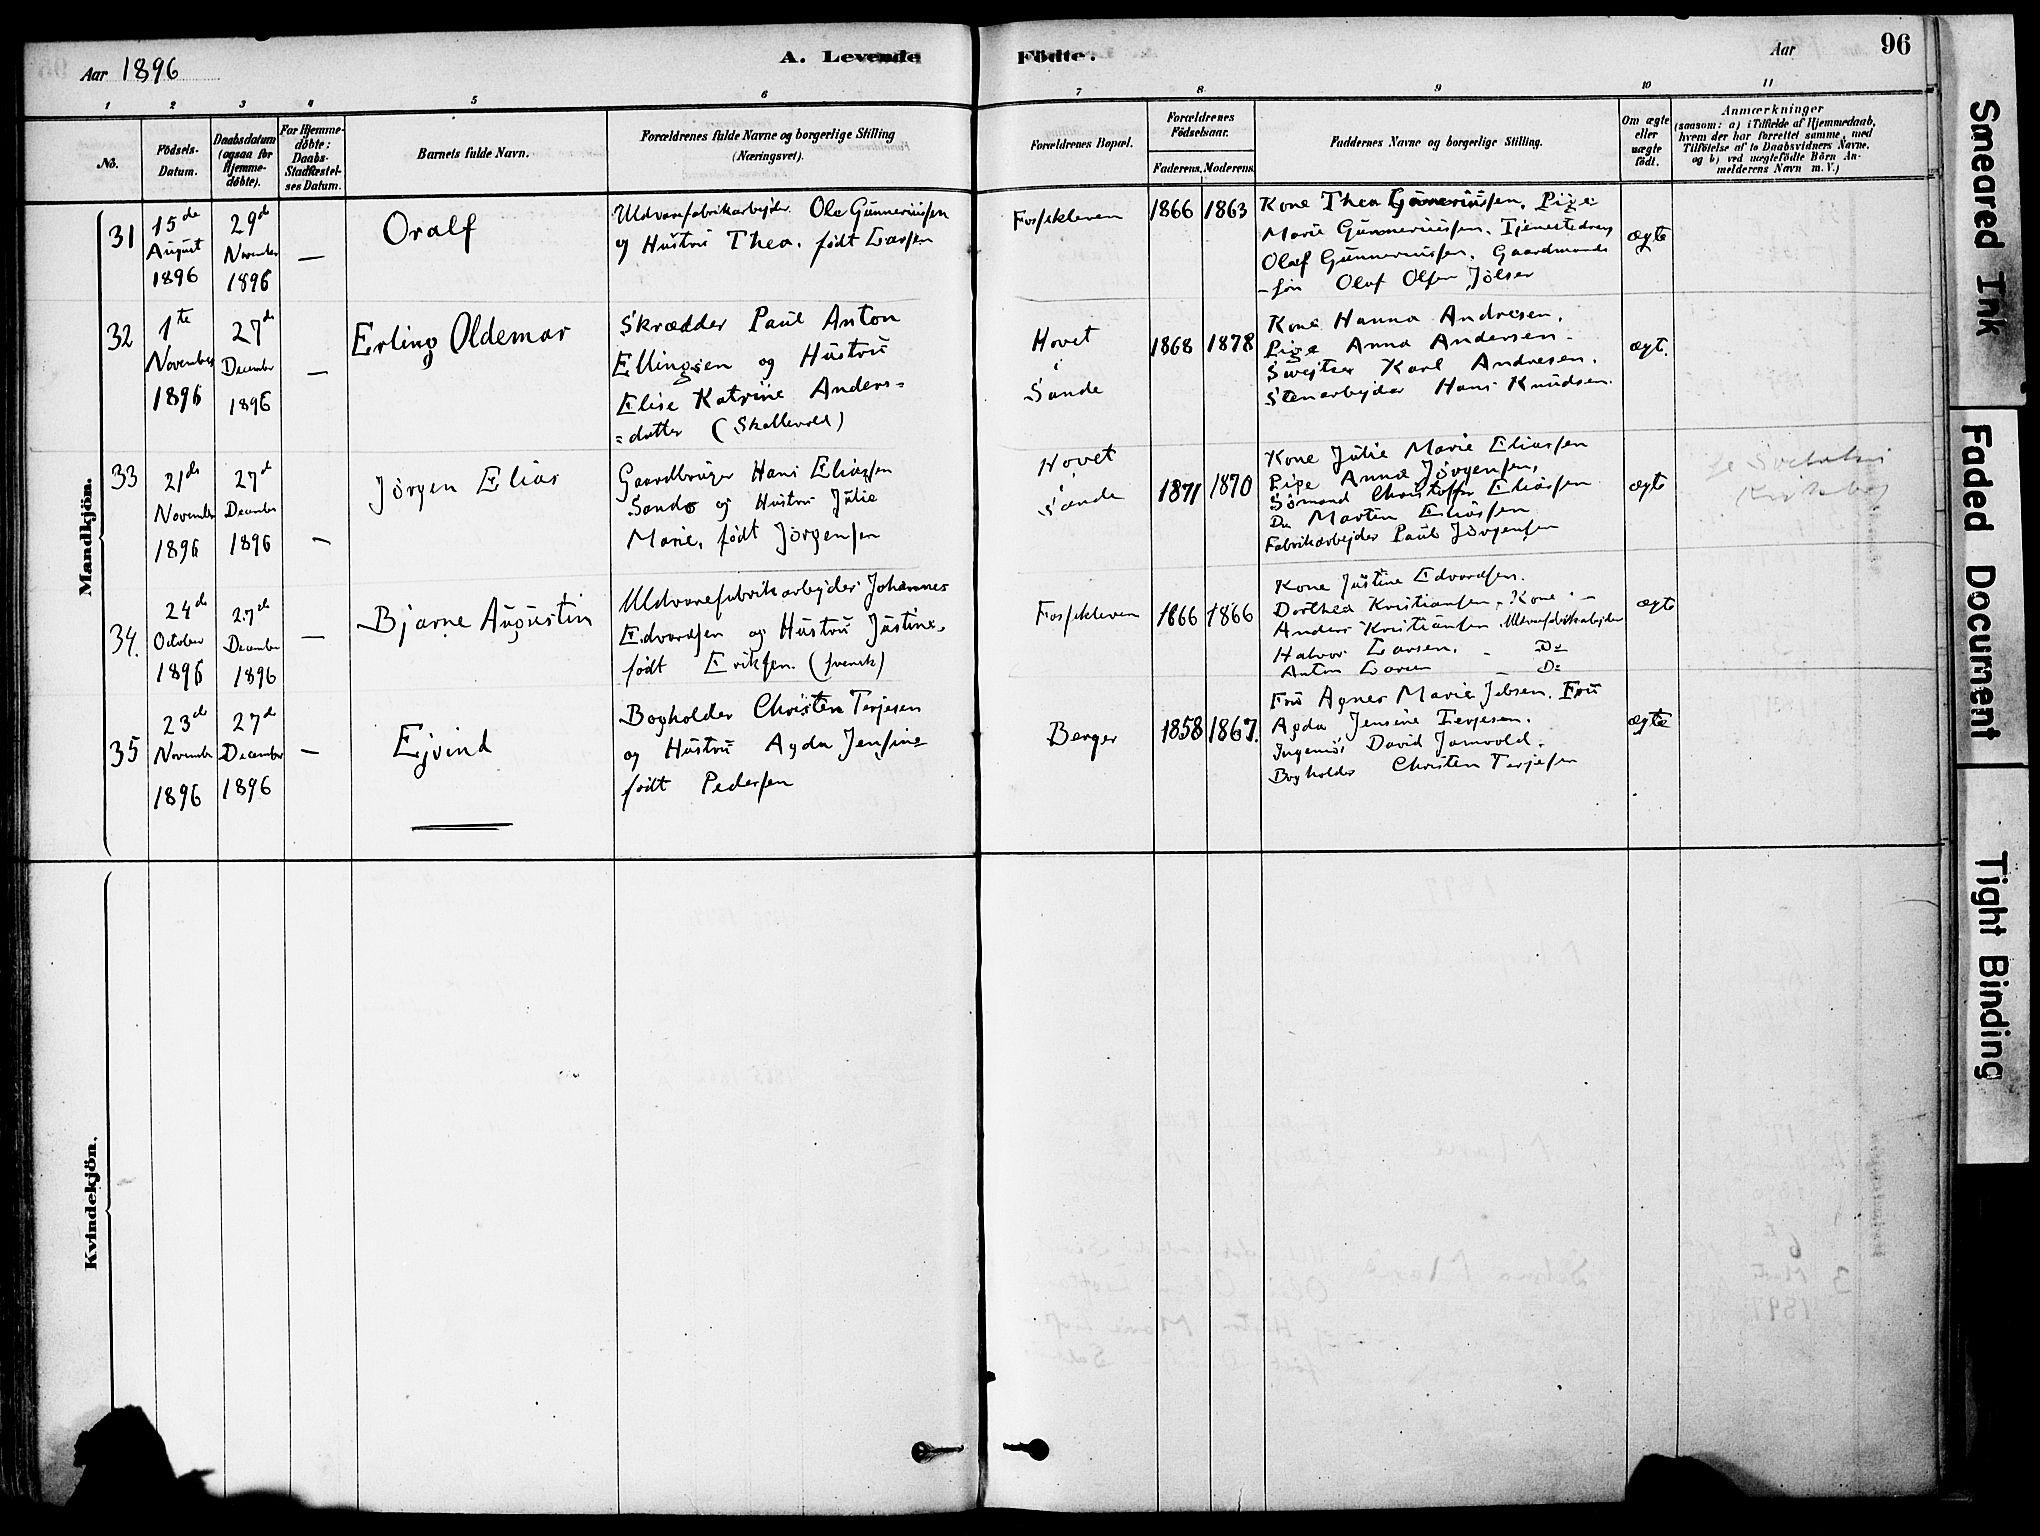 Aar 1896
A. Levende
Födte.
Aar
96
1 2 3 4 5 6 7 8 9 10 11
No.
Födsels-
Datum.
Daabsdatum
(ogsaa for
Hjemme-
döbte).
For Hjemme-
döbte:
Daabs-
Stadfæstel-
ses Datum.
Barnets fulde Navn.
Forældrenes fulde Navne og borgerlige Stilling
(Næringsvei).
Forældrenes Bopæl.
Forældrenes
Födselsaar.
Faderens. Moderens.
Faddernes Navne og borgerlige Stilling.
Om ægte
eller
uægte
födt.
Anmærkninger
(saasom: a) i Tilfælde af Hjemmedaab,
hvem der har forrettet samme, med
Tilföielse af to Daabsvidners Navne.
og b) ved uægtefödte Börn An-
melderens Navn m. V.)
Mandkjön.
31
15de
August
1896
29de
November
1896
—
Oralf
Uldvarefabrikarbejder Ole Gunneriussen
og Hustru Thea, født Larsen
Fossekleven
1866 1863
Kone Thea Gunneriussen, Pige
Marie Gunneriussen. Tjenestedreng
Olaf Gunneriussen, Gaardmands
-søn Olaf Olsen Jølser
ægte
32
1te
November
1896
27de
December
1896
—
Erling Oldemar
Skrædder Paul Anton
Ellingsen og Hustru
Elise Katrine Anders=
=datter (Skallevold)
Hovet
i
Sande
1868 1878
Kone Hanna Andresen,
Pige Anna Andersen
Svejtser Karl Andresen.
Stenarbejder Hans Knudsen.
ægt.
33
21de
November
1896
27de
December
1896
—
Jörgen Elias
Gaardbruger Hans Eliassen
Sando og Hustru Julie
Marie, født Jörgensen
Hovet
i
Sande
1871 1870
Kone Julie Marie Eliassen
Pige Anna Jörgensen,
Sömand Christoffer Eliassen
Do Marten Eliassen
Fabrikarbejder Paul Jörgensen
ægte
34.
24de
October
1896
27de
December
1896
—
Bjarne Augustin
Uldvarefabrikarbejder Johannes
Edvardsen og Hustru Justine,
født Eriksen. (svensk)
Fossekleven
1866 1866
Kone Justine Edvardsen.
Dorthea Kristiansen, Kone. —
Anders Kristiansen, Uldvarefabrikarbejder
Halvor Larsen, - Do
Anton Larsen Do
ægte
35
23de
November
1896
27de
December
1896
—
Ejvind
Bogholder Christen Terjesen
og Hustru Agda Jensine
født Pedersen
Berger
1858 1867.
Fru Agnes Marie Jebsen. Fru
Agda Jensine Terjesen.
Ingeniør David Jarnvold.
Bogholder Christen Terjesen
ægte
Kvindekjön.
Smeared Ink
Faded Document
Tight Binding